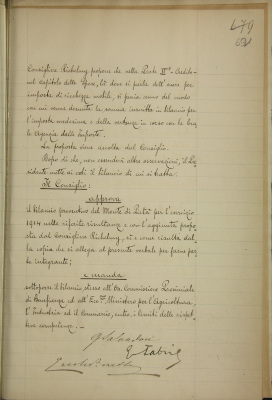 479
Consigliere Richeling propone che nella Parte IIa - Credito -
nel capitolo delle Spese, là dove si parla dell'onere per
imposta di ricchezza mobile, si faccia cenno del modo
con cui venne desunta la somma inscritta in bilancio per
l'imposta medesima e della vertenza in corso con la locale
Agenzia delle Imposte.
La proposta viene accolta dal Consiglio.
Dopo di che, non essendovi altre osservazioni, il Presidente
mette ai voti il bilancio di cui si tratta.
Il Consiglio:
approva
il bilancio preventivo del Monte di Pietà per l'esercizio
1914 nelle riferite risultanze e con l'aggiunta proposta
dal Consigliere Richeling, sì e come risulta dalla
copia che si allega al presente verbale per farne parte
integrante;
e manda
sottoporre il bilancio stesso all'On. Commissione Provinciale
di Beneficenza ed all'Ecc. Ministero per l'Agricoltura,
l'Industria ed il Commercio, entro i limiti delle rispettive
competenze. -